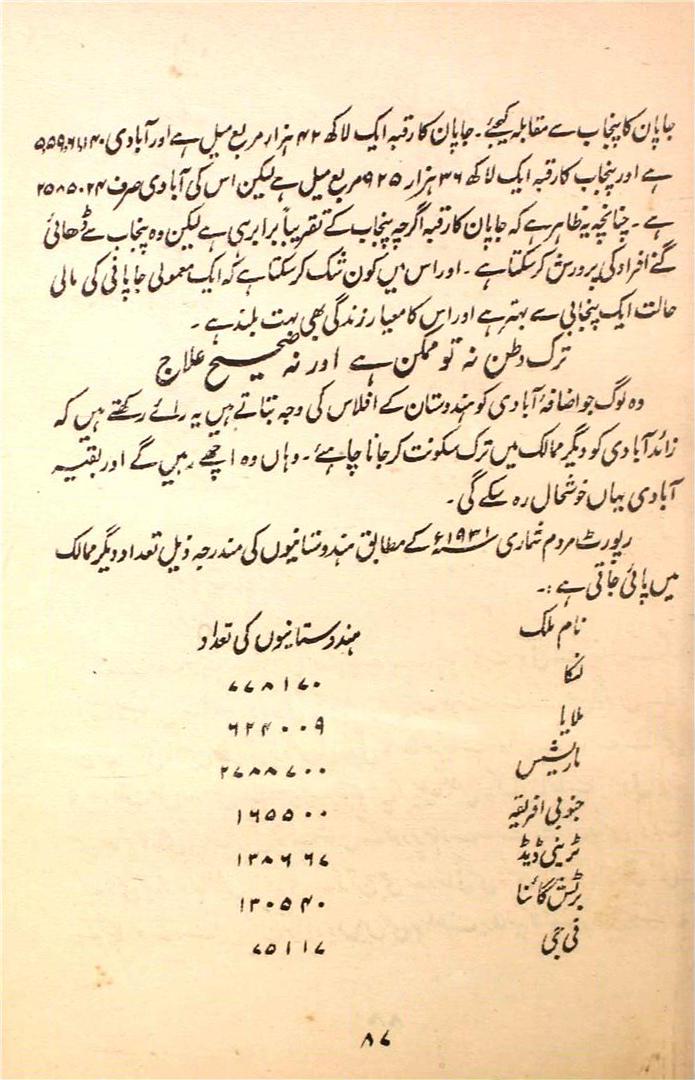 جاپان کا پنجاب سے مقابلہ کیجئے۔ جاپان کا رقبہ ایک لاکھ ۴۲ ہزار مربع میل ہے اور آبادی
ہے اور پنجاب کا رقبہ ایک لاکھ ۳۶ ہزار ۹۲۵ مربع میل ہے لیکن اس کی آبادی صرف ۲۵۸۵۰۲۴
ہے۔ چنانچہ یہ ظاہر ہے کہ جاپان کا رقبہ اگرچہ پنجاب کے تقریباً برابر ہی ہے لیکن وہ پنجاب سے ڈھائی
گنے افراد کی پرورش کر سکتا ہے۔ اور اس میں کون شک کر سکتا ہے کہ ایک معمولی جاپانی کی مالی
حالت ایک پنجابی سے بہتر ہے اور اس کا معیار زندگی بھی بہت بلند ہے۔
ترک وطن نہ تو ممکن ہے اور نہ صحیح علاج
وہ لوگ جو اضافۂ آبادی کو ہندوستان کے افلاس کی وجہ بتاتے ہیں یہ رائے رکھتے ہیں کہ
زائد آبادی کو دیگر ممالک میں ترک سکونت کر جانا چاہئے۔ وہاں وہ اچھے رہیں گے اور بقیہ
آبادی یہاں خوشحال رہ سکے گی۔
رپورٹ مردم شماری ۱۹۳۱ء کے مطابق ہندوستانیوں کی مندرجہ ذیل تعداد دیگر ممالک
میں پائی جاتی ہے:۔
نام ملک ہندوستانیوں کی تعداد
لنکا ۷۷۸۱۷۰
ملایا ۶۲۴۰۰۹
ماریشس ۲۷۸۸۷۰۰
جنوبی افریقہ ۱۶۵۵۰۰
ٹرینی ڈیڈ ۱۳۸۶۶۷
برٹش گائنا ۱۳۰۵۴۰
فی جی ۷۵۱۱۷
۸۷